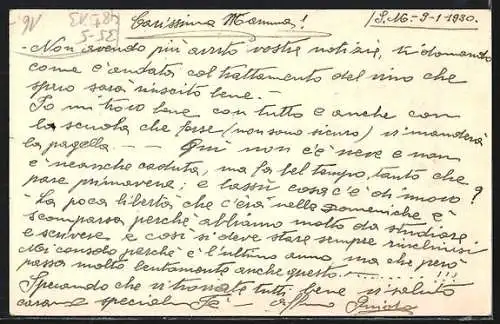 Carissima Mamma! S. M. - 9-1-1930.
- Non avendo più avuto vostre notizie, vi domando
come è andata col trattamento del vino che
spero sarà riuscito bene. -
Io mi trovo bene con tutto e anche con
la scuola che forse (non sono sicuro) vi manderà
la pagella. - - Qui non c'è neve e non
è neanche caduta, ma fa bel tempo, tanto che
pare primavera; e lassù cosa c'è di nuovo?
La poca libertà che c'era nelle domeniche è
scomparsa perchè abbiamo molto da studiare
e scrivere, e così si deve stare sempre rinchiusi
Mi consolo perchè è l'ultimo anno, ma che però
passa molto lentamente anche questo.......!!!
Sperando che vi troviate tutti bene vi saluto
special